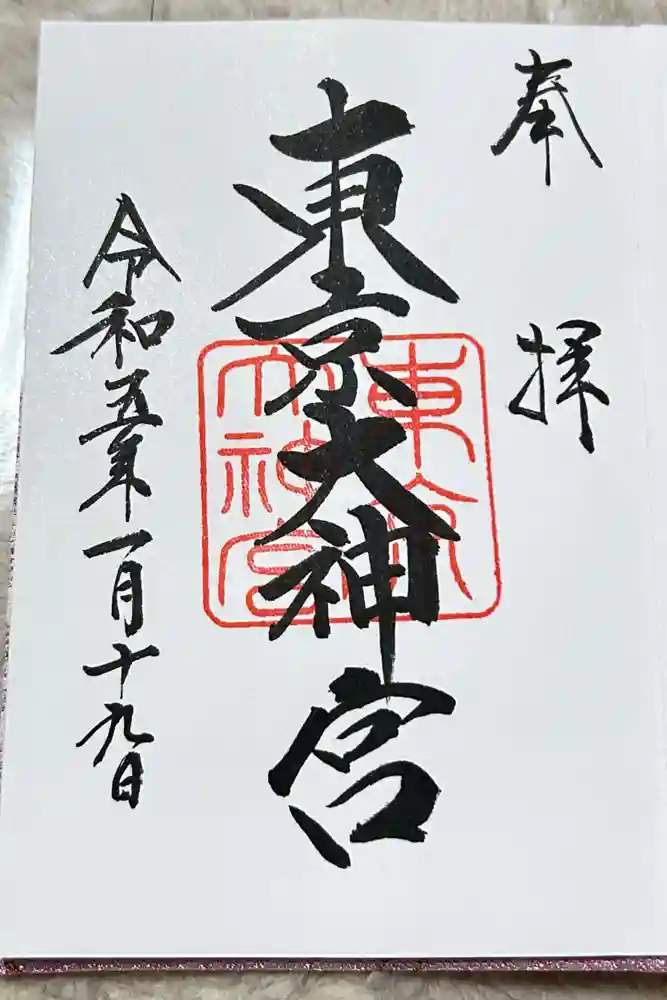 奉拝
東京大神宮
東京
大神宮
令和五年一月十九日